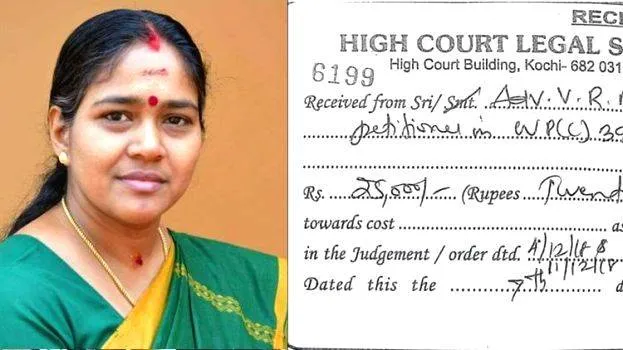 RECE
HIGH COURT LEGAL S
High Court Building, Kochi- 682 031
6199
Received from Sri/ Smt. Adv. V. R.
petitioner in WP(C) 39
Rs. 25,000/- (Rupees Twent
towards cost as
in the Judgement / order dtd. 4/12/18 &
11/12/18
Dated this the 7th d